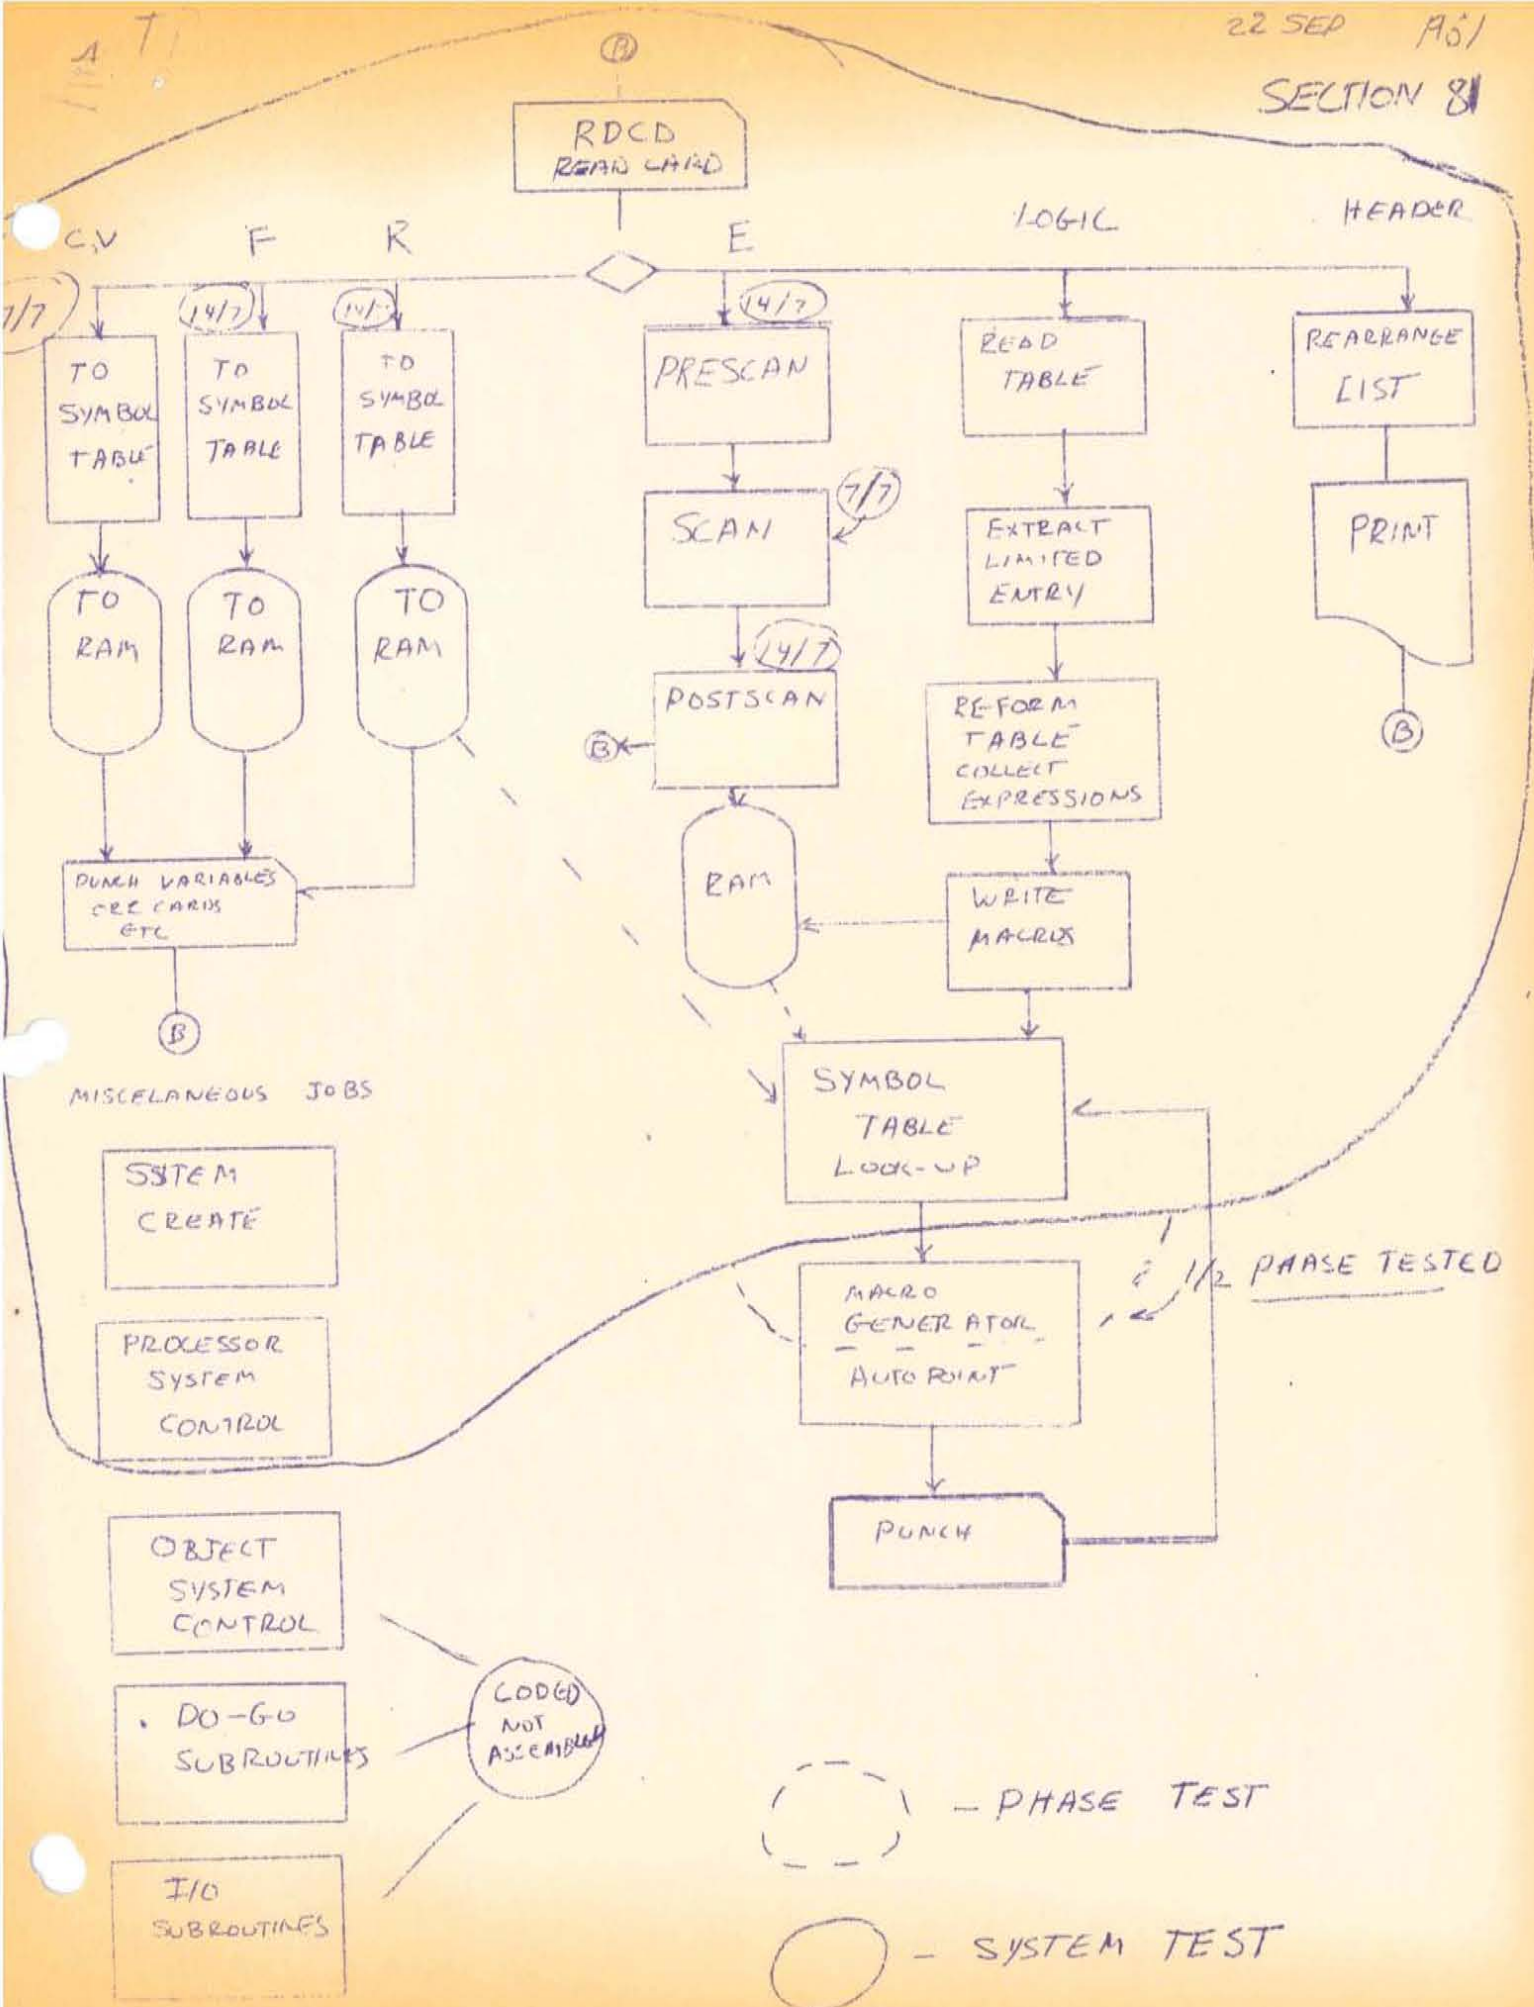 22 SEP
SECTION 81
B
RDCD
READ CARD
C,V
F
R
E
LOGIC
HEADER
7/7
14/7
14/7
TO
SYMBOL
TABLE
TO
SYMBOL
TABLE
TO
SYMBOL
TABLE
PRESCAN
READ
TABLE
REARRANGE
LIST
7/7
SCAN
EXTRACT
LIMITED
ENTRY
PRINT
TO
RAM
TO
RAM
TO
RAM
14/7
POSTSCAN
B
RE-FORM
TABLE
COLLECT
EXPRESSIONS
B
PUNCH VARIABLES
CARDS
ETC
RAM
WRITE
MACROS
B
MISCELANEOUS JOBS
SYMBOL
TABLE
LOOK-UP
SSTEM
CREATE
1/2 PHASE TESTED
MACRO
GENERATOR
AUTO POINT
PROCESSOR
SYSTEM
CONTROL
PUNCH
OBJECT
SYSTEM
CONTROL
CODED
NOT
ASSEMBLED
DO-GO
SUBROUTINES
- PHASE TEST
I/O
SUBROUTINES
- SYSTEM TEST